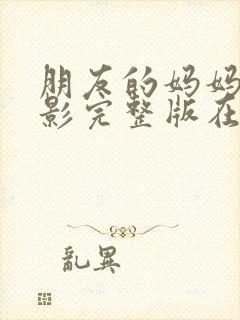 朋友的妈妈
影完整版在
乱異